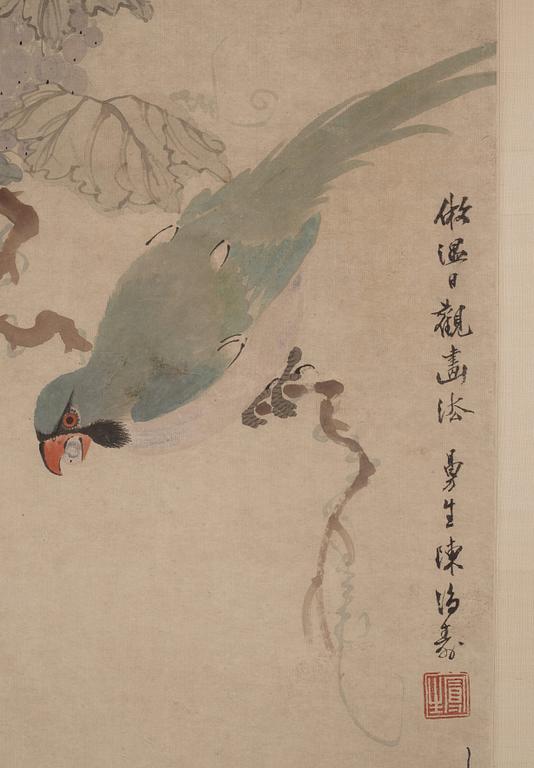 倣溫日觀畫法 曼生陳鴻壽